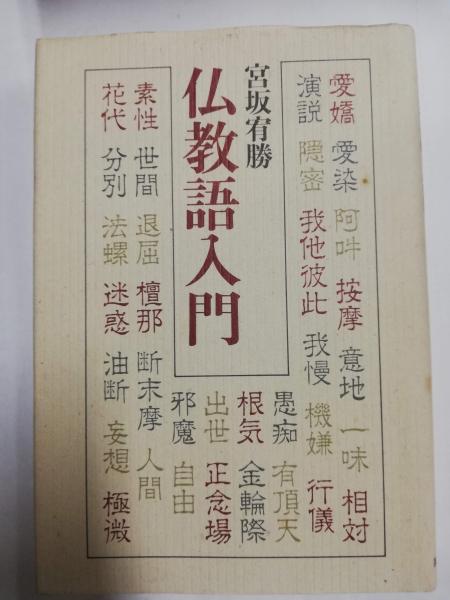 宮坂宥勝
仏教語入門
愛嬌 愛染 阿吽 按摩 意地 一味 相対
演説 隠密 我他彼此 我慢 機嫌 行儀
愚痴 有頂天
根気 金輪際
出世 正念場
邪魔 自由
素性 世間 退屈 檀那 断末摩 人間
花代 分別 法螺 迷惑 油断 妄想 極微